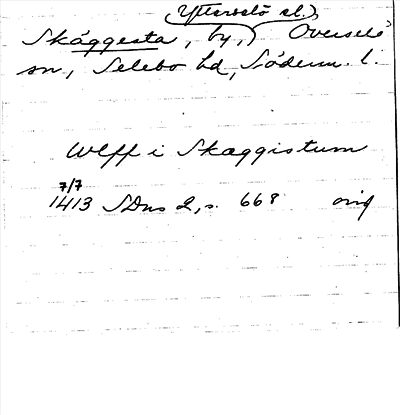 (Ytterselö sl.)
Skäggesta, by, Överselö
sn, Selebo hd, Söderm. l.
Ulff i Skæggistum
7/7
1413 SDns 2, s. 668 orig